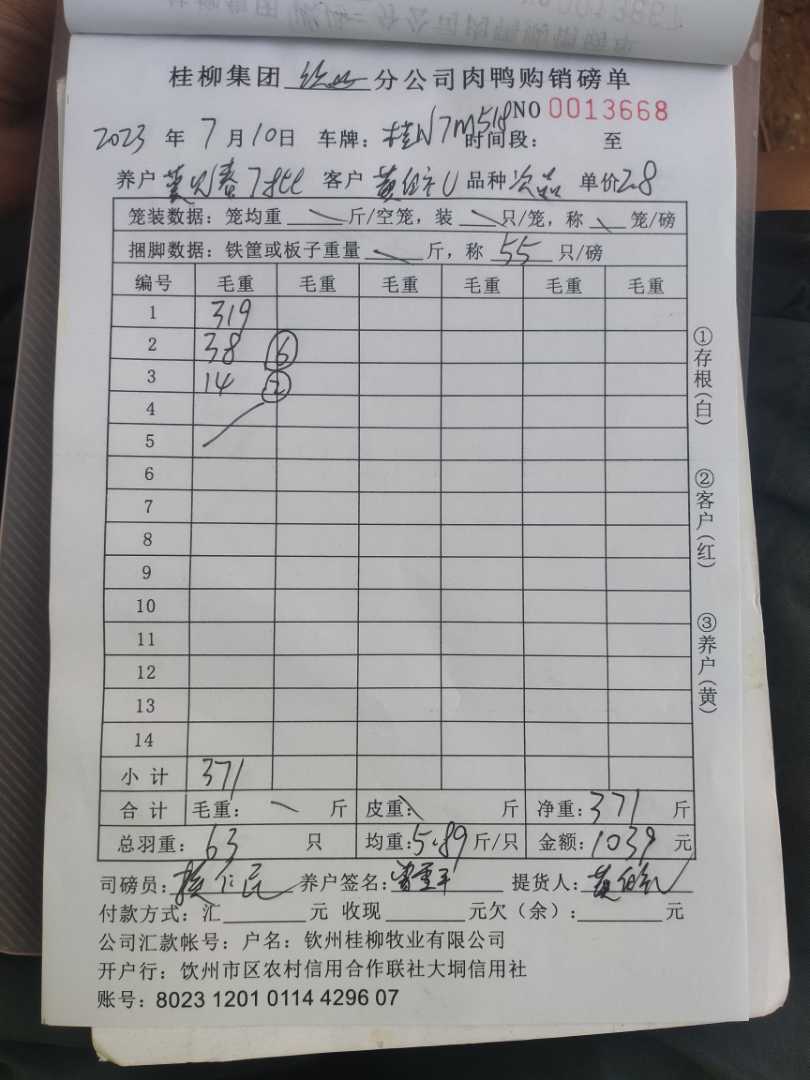 桂柳集团 钦州 分公司肉鸭购销磅单
NO 0013668
2023 年 7 月 10 日 车牌：桂N7M518 时间段： 至
养户 客户 黄 品种 次品 单价 2.8
笼装数据：笼均重 斤/空笼，装 只/笼，称 笼/磅
捆脚数据：铁筐或板子重量 斤，称 55 只/磅
编号 毛重 毛重 毛重 毛重 毛重 毛重
1 319
2 38 6
3 14 2
4
5
6
7
8
9
10
11
12
13
14
小计 371
合计 毛重： 斤 皮重： 斤 净重：371 斤
总羽重：63 只 均重：5.89 斤/只 金额：1039 元
司磅员： 仁 养户签名： 提货人：黄
付款方式：汇 元 收现 元欠（余）： 元
公司汇款帐号：户名：钦州桂柳牧业有限公司
开户行：饮州市区农村信用合作联社大垌信用社
账号：8023 1201 0114 4296 07
①存根（白）
②客户（红）
③养户（黄）